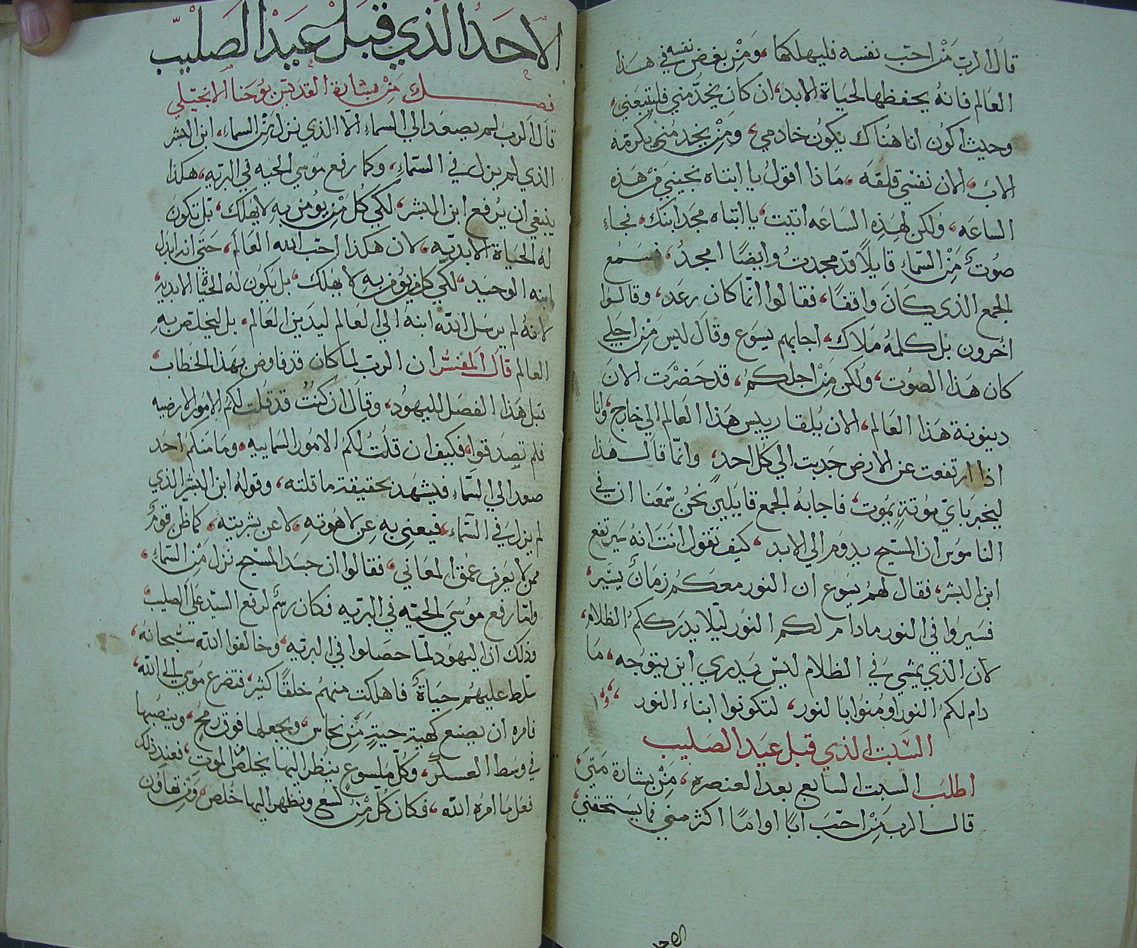 قال الرب من احب نفسه فليهلكها ومن بغض نفسه في هذا
العالم فانه يحفظها لحياة الابد، ان كان يخدمني فليتبعني،
وحيث اكون انا هناك يكون خادمي، ومن يخدمني يكرمه
الاب، الان نفسي قلقه، ماذا اقول يا ابتاه نجيني من هذه
الساعه، ولكن لهذه الساعه اتيت، يا ابتاه مجد ابنك، فجاء
صوت من السماء قايلاً قد مجدت وايضًا امجد، فسمع
الجمع الذي كان واقفًا، فقالوا انما كان رعد، وقالوا
اخرون بل كلمه ملاك، اجابهم يسوع وقال ليس من اجلي
كان هذا الصوت، ولكن من اجلكم، قد حضرت الان
دينونة هذا العالم، الان يلقا رييس هذا العالم الي خارج، وانا
اذا ارتفعت عن الارض جدبت الي كل احد، وانما قال هذا
ليخبر باي موتة يموت، فاجابه الجمع قايلين نحن سمعنا ان في
الناموس ان المسيح يدوم الي الابد، كيف تقول انت انه سيرتفع
ابن البشر، فقال لهم يسوع ان النور معكم زمان يسير،
فسيروا في النور مادام لكم النور ليلا يدرككم الظلام،
لان الذي يمشي في الظلام ليس يدري اين يتوجه، ما
دام لكم النور اومنوا بالنور، لتكونوا ابناء النور
السبت الذي قبل عيد الصليب
اطلب السبت السابع بعد العنصره، من بشارة متي،
قال الرب من احب ابًا او امًا اكثر مني فما يستحقني،
الاحد الذي قبل عيد الصليب
فصل من بشارة القديس يوحنا الانجيلي
قال الرب لم يصعد الي السماء الا الذي نزل من السماء، ابن البشر
الذي لم يزل في السماء، وكما رفع موسي الحيه في البريه، هكذا
ينبغي ان يرفع ابن البشر، لكي كل من يومن به لا يهلك، بل تكون
له الحياة الابديه، لان هكذا احب الله العالم، حتي انه بذل
ابنه الوحيد، لكي كل من يومن به لا يهلك، بل يكون له الحياة الابديه
لانه لم يرسل الله ابنه الي العالم ليدين العالم، بل ليخلص به
العالم قال المفسر ان الرب لما كان قد فاوض بهذا الخطاب
قبل هذا الفصل لليهود، وقال ان كنت قد قلت لكم الامور الارضيه
فلم تصدقوا، فكيف ان قلت لكم الامور السمائيه، وما منكم احد
صعد الي السماء فيشهد بحقيقة ما قلته، وقوله ابن البشر الذي
لم يزل في السماء، فيعني به عن لاهوته، لا عن بشريته، كما ظن قوم
ممن لا يعرف عمق المعاني، فقالوا ان جسد المسيح نزل من السماء،
ولما رفع موسي الحيه في البريه فكان رسم لرفع السيد علي الصليب
وذلك ان اليهود لما حصلوا في البريه، وخالفوا الله سبحانه،
سلط عليهم حياة، فاهلكت منهم خلقًا كثير، فتضرع موسي الي الله،
فامره ان يصنع كهية حية من نحاس، ويجعلها فوق رمح، وينصبها
في وسط العسكر، وكل ملسوع ينظر اليها يخلص من الموت، فعند ذلك
فعل ما امره الله، فكان كل من لسع ونظر اليها خلص، ومن تهاون